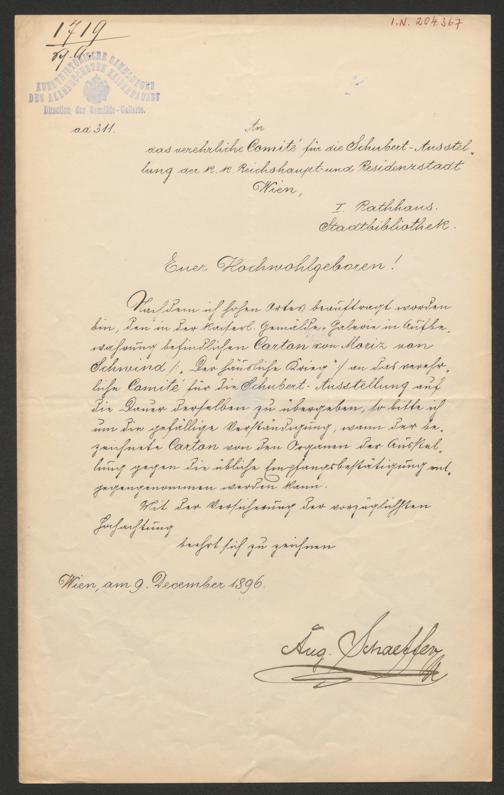 1719
I.N. 204.367
KUNSTHISTORISCHE SAMMLUNGEN
DES ALLERHÖCHSTEN KAISERHAUSES
Direction der Gemälde-Gallerie.
ad 311.
An
das verehrliche Comité für die Schubert-Ausstel-
lung der k. k. Reichshaupt- und Residenzstadt
Wien,
I. Rathhaus.
Stadtbibliothek.
Euer Hochwohlgeboren!
Nachdem ich hohen Ortes beauftragt worden
bin, den in der kaiserl. Gemälde-Galerie in Aufbe-
wahrung befindlichen Carton von Moriz von
Schwind /: "Der häusliche Krieg" :/ an das verehr-
liche Comité für die Schubert-Ausstellung auf
die Dauer derselben zu übergeben, so bitte ich
um die gefällige Verständigung, wann der be-
zeichnete Carton von den Organen der Ausstel-
lung gegen die übliche Empfangsbestätigung ent-
gegengenommen werden kann.
Mit der Versicherung der vorzüglichsten
Hochachtung
beehrt sich zu zeichnen
Wien, am 9. December 1896.
Aug. Schaeffer